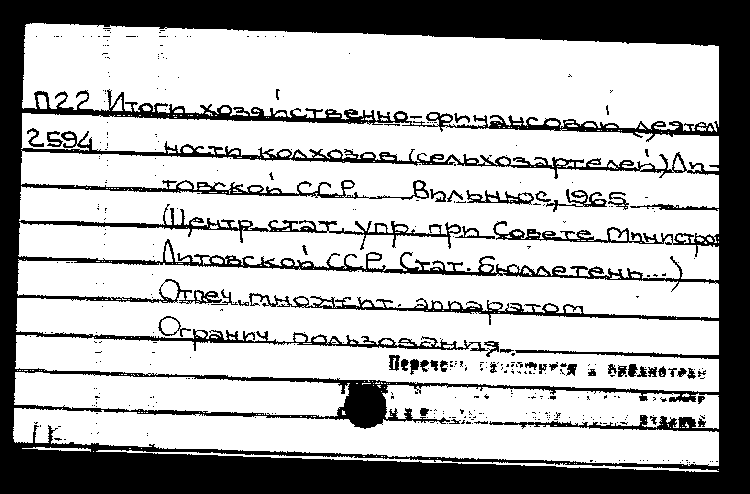 П22 Итоги хозяйственно-финансовой деятель
2594 ности колхозов (сельхозартелей) Ли-
товской ССР. Вильнюс, 1965
(Центр. стат. упр. при Совете Министров
Литовской ССР. Стат. бюллетень...)
Отпеч. множит. аппаратом
Огранич. пользования.
Перечень в библиотеке
изданий